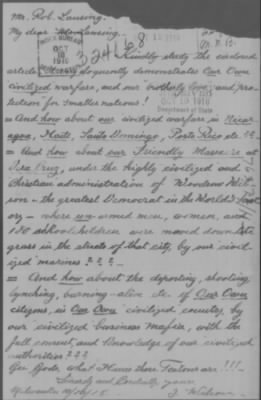 Mr. Rob. Lansing.
My dear Mr. Lansing.
OCT 18 1916
24168
Kindly study the enclosed
article. It eloquently demonstrates Our Own
civilized warfare, and our brotherly love and pro-
tection for smaller nations!
OCT 19 1916
Department of State
= And how about our civilized warfare in Nicar-
agua, Haiti, Santo Domingo, Porto Rico etc. ??
= And how about our Friendly Massacre at
Vera Cruz, under the highly civilized and
Christian administration of Woodrow Wil-
son - the greatest Democrat in the World's hist
ory - where un-armed men, women, and
150 schoolchildren were mowed down like
grass in the streets of that city, by our civil-
ized marines? ? ?
= And how about the deporting, shooting,
lynching, burning-alive etc. of Our Own
citizens, in Our Own civilized country, by
our civilized business mafia, with the
full consent and knowledge of our civilized
authorities???
Gee Gods, what Huns those Teutons are!!!
Sincerely and Cordially yours
Milwaukee
J. Wilson